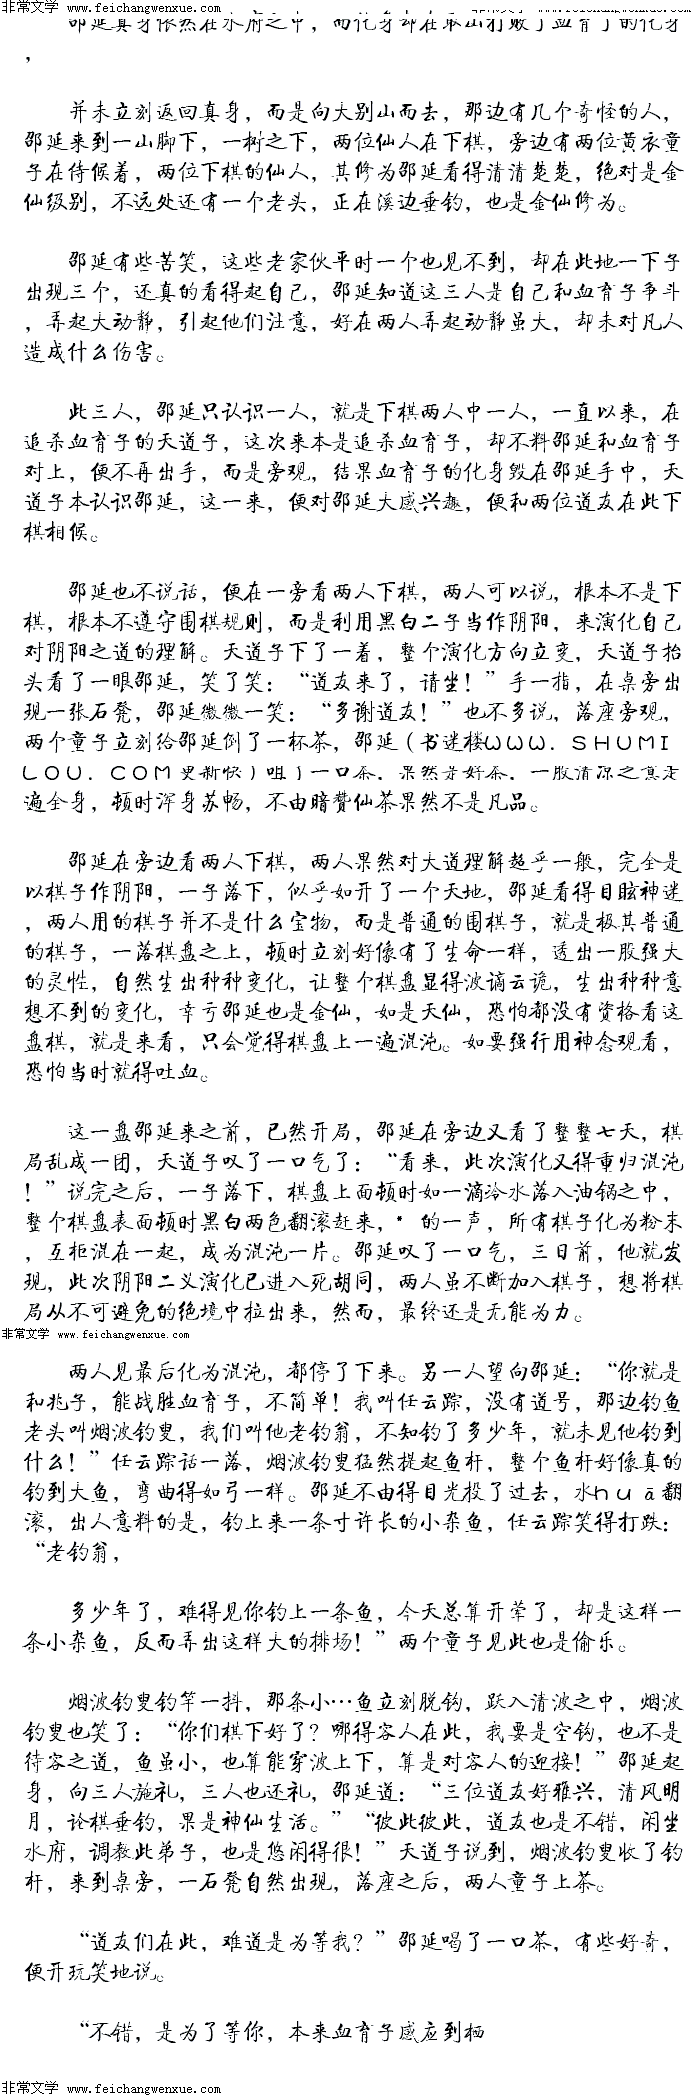 非常文学 www.feichangwenxue.com
邵延真身依然在水府之中，而化身却在
，
并未立刻返回真身，而是向大别山而去，那边有几个奇怪的人，
邵延来到一山脚下，一树之下，两位仙人在下棋，旁边有两位黄衣童
子在侍候着，两位下棋的仙人，其修为邵延看得清清楚楚，绝对是金
仙级别，不远处还有一个老头，正在溪边垂钓，也是金仙修为。
邵延有些苦笑，这些老家伙平时一个也见不到，却在此地一下子
出现三个，还真的看得起自己，邵延知道这三人是自己和血育子争斗
，弄起大动静，引起他们注意，好在两人弄起动静虽大，却未对凡人
造成什么伤害。
此三人，邵延只认识一人，就是下棋两人中一人，一直以来，在
追杀血育子的天道子，这次来本是追杀血育子，却不料邵延和血育子
对上，便不再出手，而是旁观，结果血育子的化身毁在邵延手中，天
道子本认识邵延，这一来，便对邵延大感兴趣，便和两位道友在此下
棋相候。
邵延也不说话，便在一旁看两人下棋，两人可以说，根本不是下
棋，根本不遵守围棋规则，而是利用黑白二子当作阴阳，来演化自己
对阴阳之道的理解。天道子下了一着，整个演化方向立变，天道子抬
头看了一眼邵延，笑了笑：“道友来了，请坐！”手一指，在桌旁出
现一张石凳，邵延微微一笑：“多谢道友！”也不多说，落座旁观，
两个童子立刻给邵延倒了一杯茶，邵延（书迷楼ＷＷＷ．ＳＨＵＭＩ
ＬＯＵ．ＣＯＭ更新快）咀了一口茶，果然是好茶，一股清凉之意走
遍全身，顿时浑身苏畅，不由暗赞仙茶果然不是凡品。
邵延在旁边看两人下棋，两人果然对大道理解超乎一般，完全是
以棋子作阴阳，一子落下，似乎如开了一个天地，邵延看得目眩神迷
，两人用的棋子并不是什么宝物，而是普通的围棋子，就是极其普通
的棋子，一落棋盘之上，顿时立刻好像有了生命一样，透出一股强大
的灵性，自然生出种种变化，让整个棋盘显得波谲云诡，生出种种意
想不到的变化，幸亏邵延也是金仙，如是天仙，恐怕都没有资格看这
盘棋，就是来看，只会觉得棋盘上一遍混沌。如要强行用神念观看，
恐怕当时就得吐血。
这一盘邵延来之前，已然开局，邵延在旁边又看了整整七天，棋
局乱成一团，天道子叹了一口气了：“看来，此次演化又得重归混沌
！”说完之后，一子落下，棋盘上面顿时如一滴冷水落入油锅之中，
整个棋盘表面顿时黑白两色翻滚赶来，* 的一声，所有棋子化为粉末
，互柜混在一起，成为混沌一片。邵延叹了一口气，三日前，他就发
现，此次阴阳二义演化已进入死胡同，两人虽不断加入棋子，想将棋
局从不可避免的绝境中拉出来，然而，最终还是无能为力。
非常文学 www.feichangwenxue.com
两人见最后化为混沌，都停了下来。另一人望向邵延：“你就是
和兆子，能战胜血育子，不简单！我叫任云踪，没有道号，那边钓鱼
老头叫烟波钓叟，我们叫他老钓翁，不知钓了多少年，就未见他钓到
什么！”任云踪话一落，烟波钓叟猛然提起鱼杆，整个鱼杆好像真的
钓到大鱼，弯曲得如弓一样。邵延不由得目光投了过去，水ｈｕā翻
滚，出人意料的是，钓上来一条寸许长的小杂鱼，任云踪笑得打跌：
“老钓翁，
多少年了，难得见你钓上一条鱼，今天总算开荤了，却是这样一
条小杂鱼，反而弄出这样大的排场！”两个童子见此也是偷乐。
烟波钓叟钓竿一抖，那条小…鱼立刻脱钩，跃入清波之中，烟波
钓叟也笑了：“你们棋下好了？哪得客人在此，我要是空钩，也不是
待客之道，鱼虽小，也算能穿波上下，算是对客人的迎接！”邵延起
身，向三人施礼，三人也还礼，邵延道：“三位道友好雅兴，清风明
月，论棋垂钓，果是神仙生活。”“彼此彼此，道友也是不错，闲坐
水府，调教此弟子，也是悠闲得很！”天道子说到，烟波钓叟收了钓
杆，来到桌旁，一石凳自然出现，落座之后，两人童子上茶。
“道友们在此，难道是为等我？”邵延喝了一口茶，有些好奇，
便开玩笑地说。
“不错，是为了等你，本来血育子感应到栖
非常文学 www.feichangwenxue.com